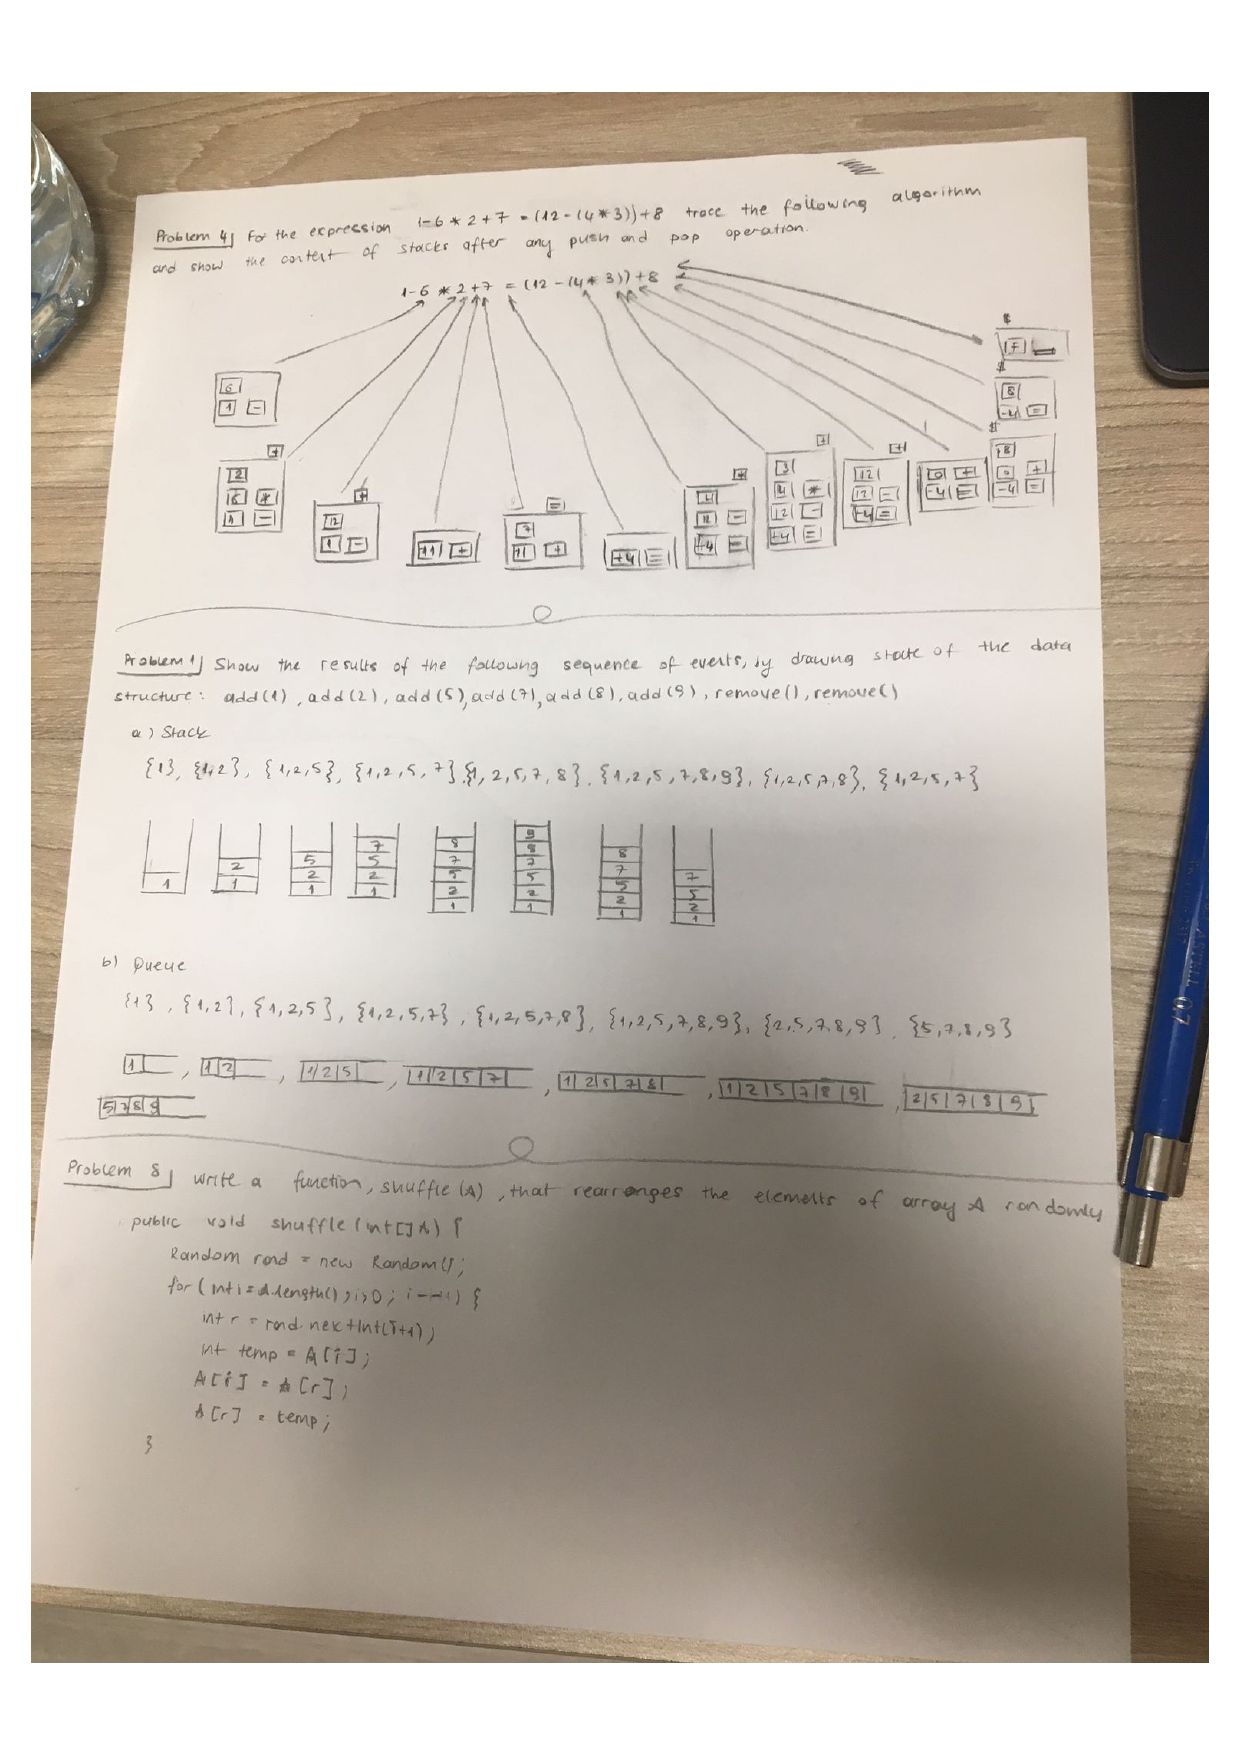 Problem 4) For the expression 1-6 * 2 + 7 = (12 - (4 * 3)) + 8 trace the following algorithm
and show the content of stacks after any push and pop operation.
1-6 * 2 + 7 = (12 - (4 * 3)) + 8
$
F
$
6
8
1 -
-4 =
$
+
+
+
+
8
2
+
=
3
12
0 +
0 +
6 *
12
7
4
4 *
12 -
-4 =
-4 =
1 -
1 -
11 +
11 +
+4 =
12 -
12 -
-4 =
+4 =
+4 =
Problem 1) Show the results of the following sequence of events, by drawing state of the data
structure: add(1), add(2), add(5), add(7), add(8), add(9), remove(), remove()
a) Stack
{1}, {1,2}, {1,2,5}, {1,2,5,7}, {1,2,5,7,8}, {1,2,5,7,8,9}, {1,2,5,7,8}, {1,2,5,7}
9
7 8 8
5 5 7 7 8
2 2 2 5 5 7 7
1 1 1 1 2 2 5 5
1 1 2 2
1 1
b) Queue
{1}, {1,2}, {1,2,5}, {1,2,5,7}, {1,2,5,7,8}, {1,2,5,7,8,9}, {2,5,7,8,9}, {5,7,8,9}
1 , 1 2 , 1 2 5 , 1 2 5 7 , 1 2 5 7 8 , 1 2 5 7 8 9 , 2 5 7 8 9
5 7 8 9
Problem 8) write a function, shuffle (A), that rearranges the elemelts of array A randomly
public void shuffle (int[] A) {
Random rand = new Random();
for (int i = A.length(); i>0; i--) {
int r = rand.nextInt(i+1);
int temp = A[i];
A[i] = A[r];
A[r] = temp;
}